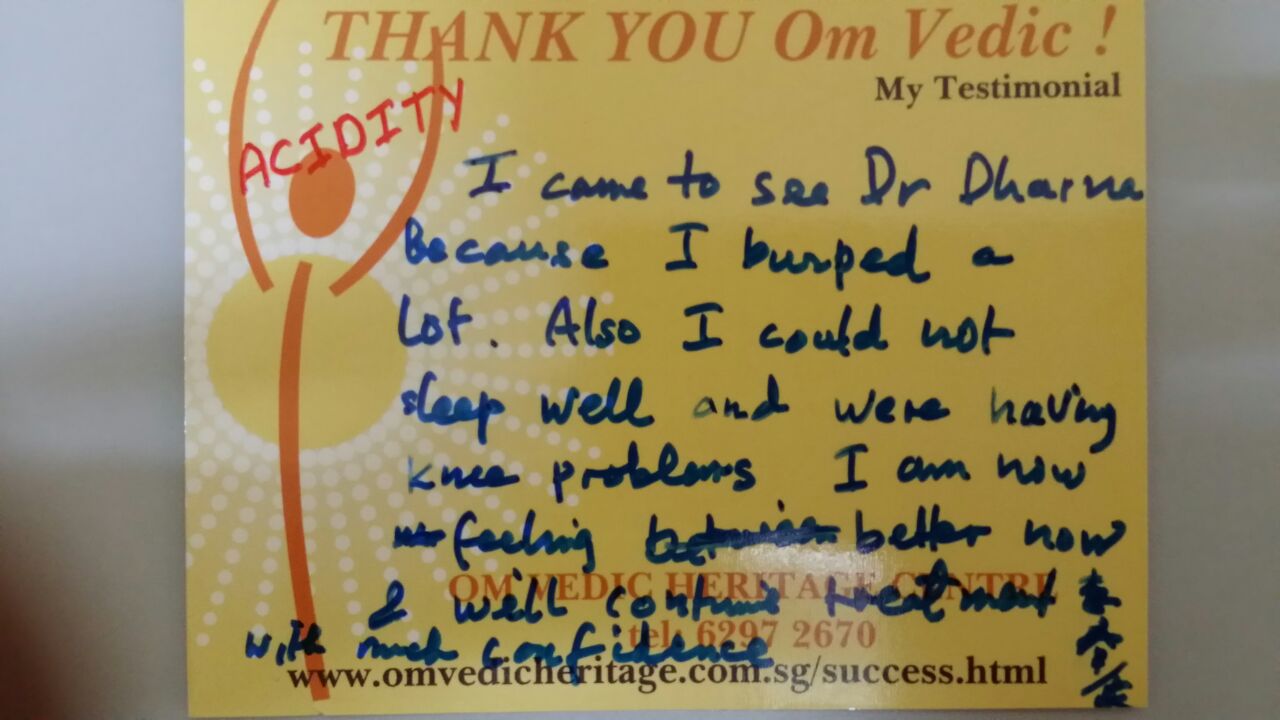 THANK YOU Om Vedic !
My Testimonial
ACIDITY
I came to see Dr Dharne
Because I burped a
Lot. Also I could not
sleep well and were having
knee problems I am now
feeling better now
OM VEDIC HERITAGE CENTRE
& will continue treatment
tel: 6297 2670
with much confidence
www.omvedicheritage.com.sg/success.html